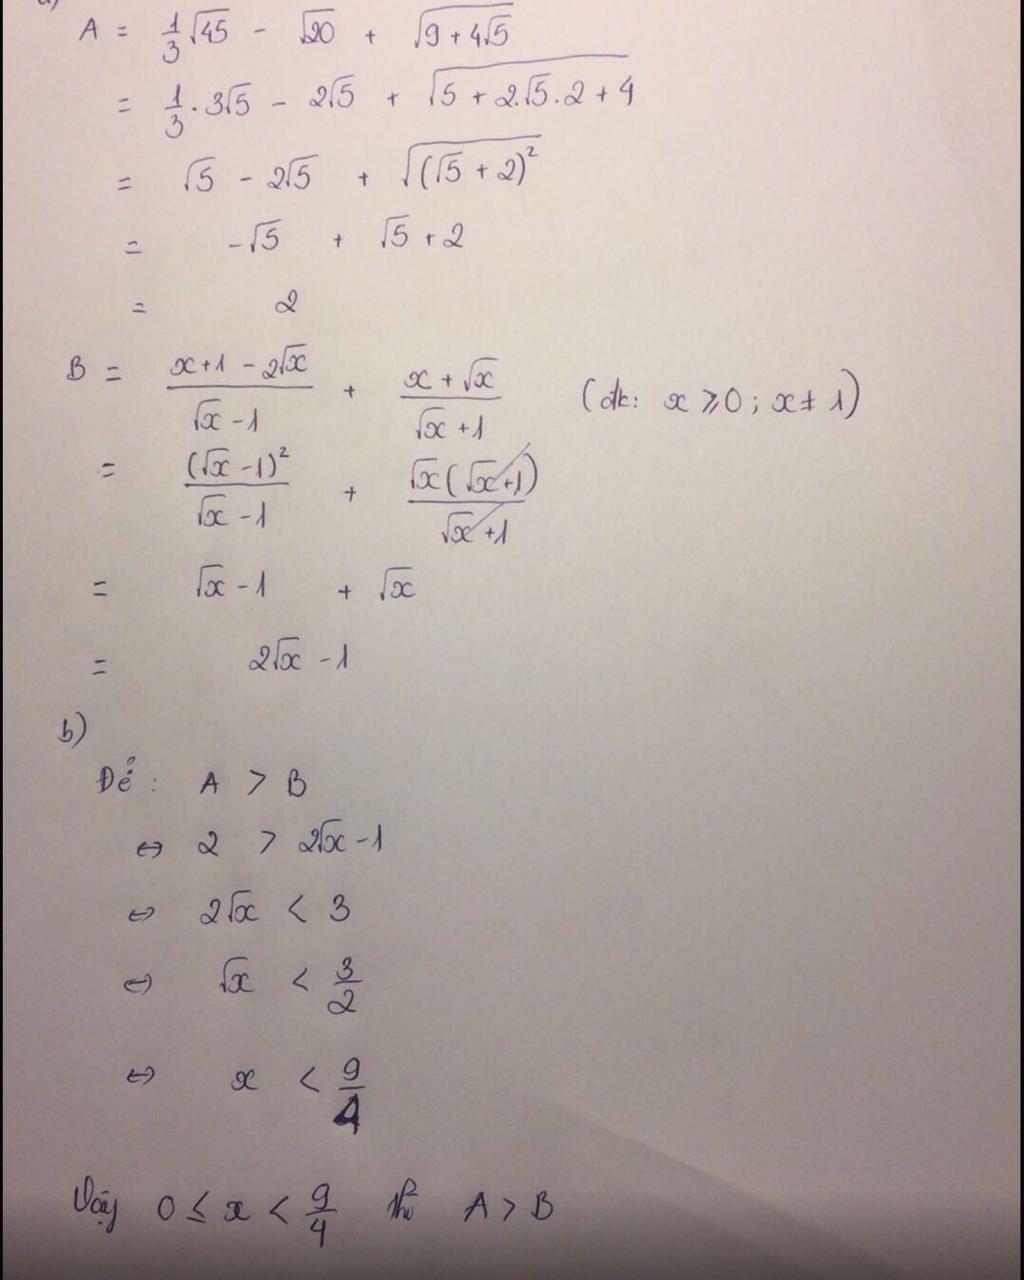 a)
A = 1/3 √45 - √20 + √(9 + 4√5)
= 1/3 . 3√5 - 2√5 + √(5 + 2.√5.2 + 4)
= √5 - 2√5 + √((√5 + 2)²)
= -√5 + √5 + 2
= 2
B = (x + 1 - 2√x)/(√x - 1) + (x + √x)/(√x + 1) (đk: x ⩾ 0 ; x ≠ 1)
= (√x - 1)²/(√x - 1) + √x(√x + 1)/(√x + 1)
= √x - 1 + √x
= 2√x - 1
b)
Để : A > B
⇔ 2 > 2√x - 1
⇔ 2√x < 3
⇔ √x < 3/2
⇔ x < 9/4
Vậy 0 ≤ x < 9/4 thì A > B